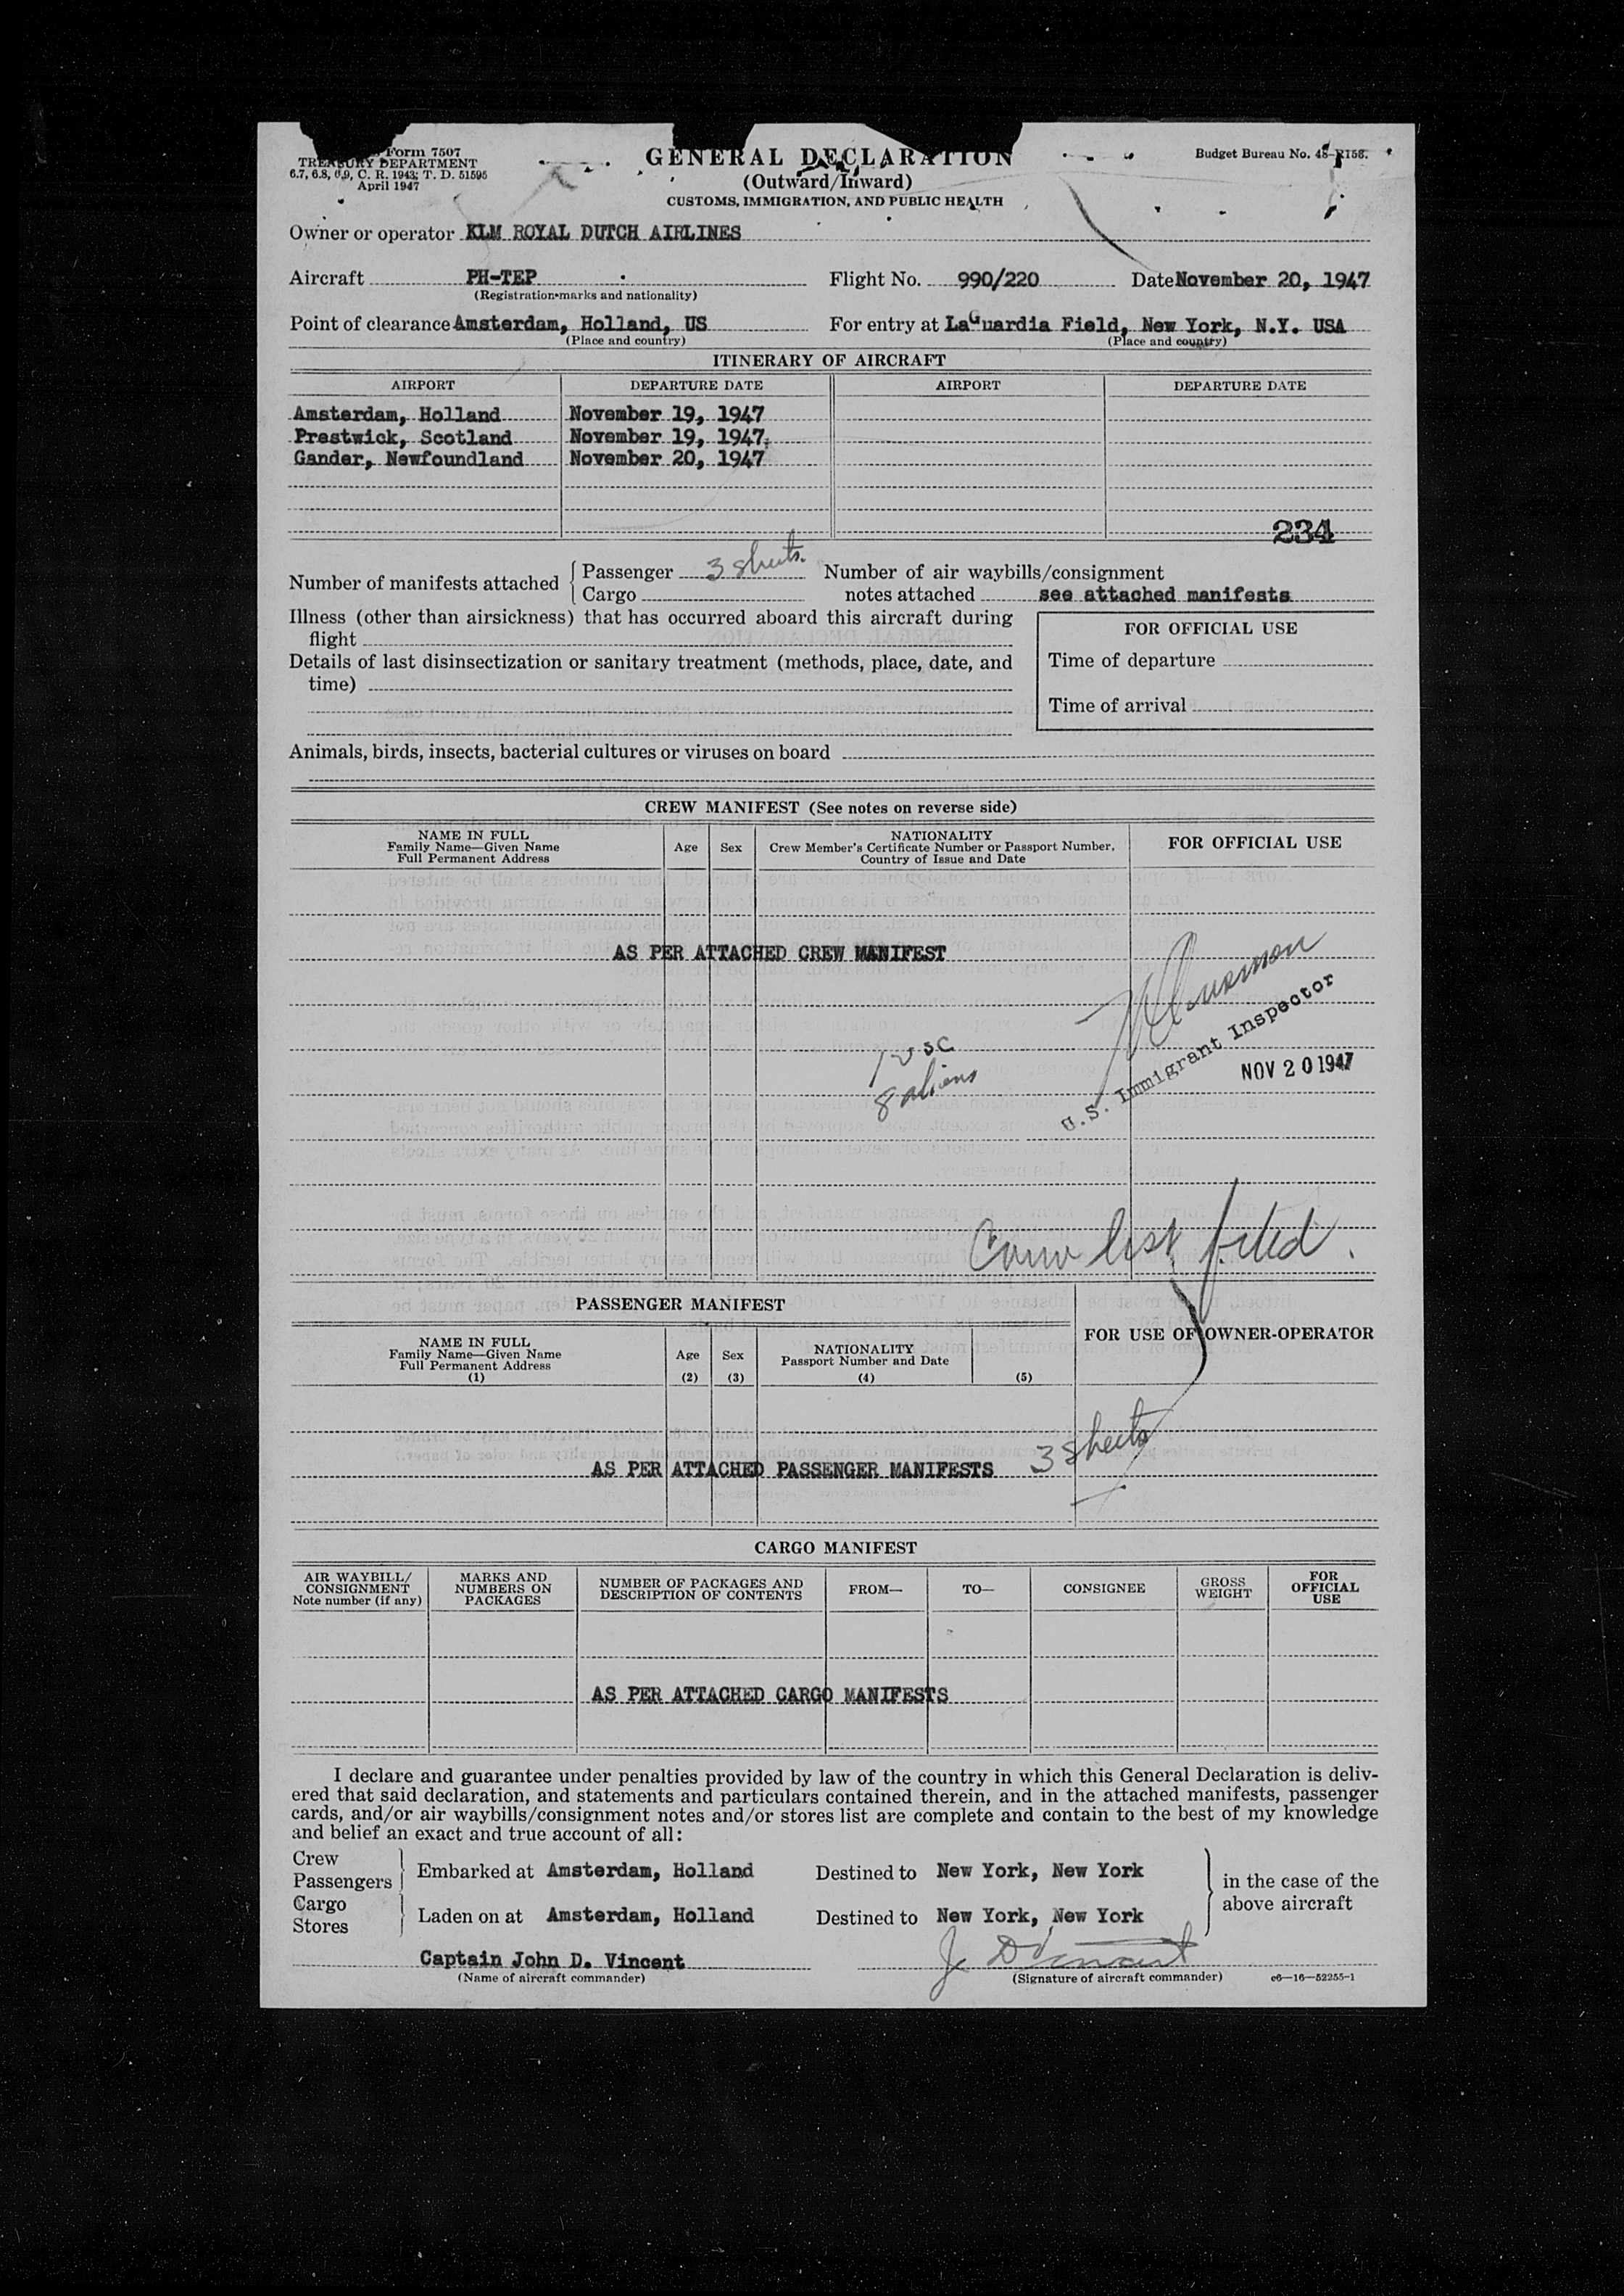 Form 7507
TREASURY DEPARTMENT
6.7, 6.8, 6.9, C. R. 1943; T. D. 51595
April 1947
GENERAL DECLARATION
(Outward/Inward)
CUSTOMS, IMMIGRATION, AND PUBLIC HEALTH
Budget Bureau No. 48-R156.
Owner or operator KLM ROYAL DUTCH AIRLINES
Aircraft PH-TEP Flight No. 990/220 Date November 20, 1947
(Registration marks and nationality)
Point of clearance Amsterdam, Holland, US For entry at LaGuardia Field, New York, N.Y. USA
(Place and country) (Place and country)
ITINERARY OF AIRCRAFT
AIRPORT DEPARTURE DATE AIRPORT DEPARTURE DATE
Amsterdam, Holland November 19, 1947
Prestwick, Scotland November 19, 1947
Gander, Newfoundland November 20, 1947
234
Number of manifests attached Passenger 3 sheets. Number of air waybills/consignment
Cargo notes attached see attached manifests
Illness (other than airsickness) that has occurred aboard this aircraft during
flight
Details of last disinsectization or sanitary treatment (methods, place, date, and
time)
FOR OFFICIAL USE
Time of departure
Time of arrival
Animals, birds, insects, bacterial cultures or viruses on board
CREW MANIFEST (See notes on reverse side)
NAME IN FULL
Family Name—Given Name
Full Permanent Address
Age
Sex
NATIONALITY
Crew Member's Certificate Number or Passport Number,
Country of Issue and Date
FOR OFFICIAL USE
AS PER ATTACHED CREW MANIFEST
U.S. Immigrant Inspector
NOV 20 1947
1 USC
8 aliens
Crew list filed.
PASSENGER MANIFEST
FOR USE OF OWNER-OPERATOR
NAME IN FULL
Family Name—Given Name
Full Permanent Address
(1)
Age
(2)
Sex
(3)
NATIONALITY
Passport Number and Date
(4)
(5)
AS PER ATTACHED PASSENGER MANIFESTS 3 sheets
CARGO MANIFEST
AIR WAYBILL/
CONSIGNMENT
Note number (if any)
MARKS AND
NUMBERS ON
PACKAGES
NUMBER OF PACKAGES AND
DESCRIPTION OF CONTENTS
FROM—
TO—
CONSIGNEE
GROSS
WEIGHT
FOR
OFFICIAL
USE
AS PER ATTACHED CARGO MANIFESTS
I declare and guarantee under penalties provided by law of the country in which this General Declaration is deliv-
ered that said declaration, and statements and particulars contained therein, and in the attached manifests, passenger
cards, and/or air waybills/consignment notes and/or stores list are complete and contain to the best of my knowledge
and belief an exact and true account of all:
Crew
Passengers Embarked at Amsterdam, Holland Destined to New York, New York
in the case of the
above aircraft
Cargo
Stores Laden on at Amsterdam, Holland Destined to New York, New York
Captain John D. Vincent J. D. Vincent
(Name of aircraft commander) (Signature of aircraft commander) c6—16—52255-1